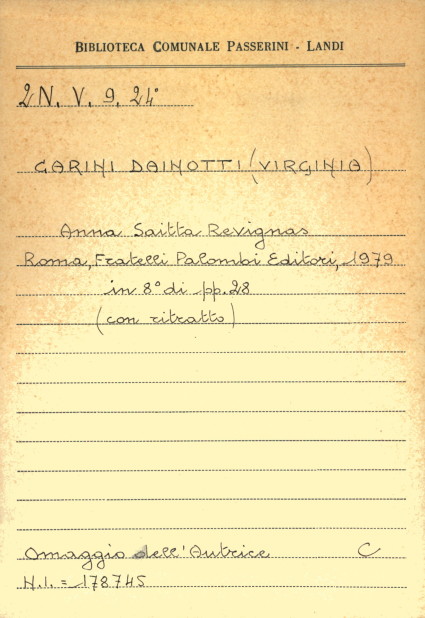 BIBLIOTECA COMUNALE PASSERINI - LANDI
2N. V. 9. 24°
CARINI DAINOTTI (VIRGINIA)
Anna Saitta Revignas
Roma, Fratelli Palombi Editori, 1979
in 8° di pp. 28
(con ritratto)
Omaggio dell'Autrice C
N.I. = 178745